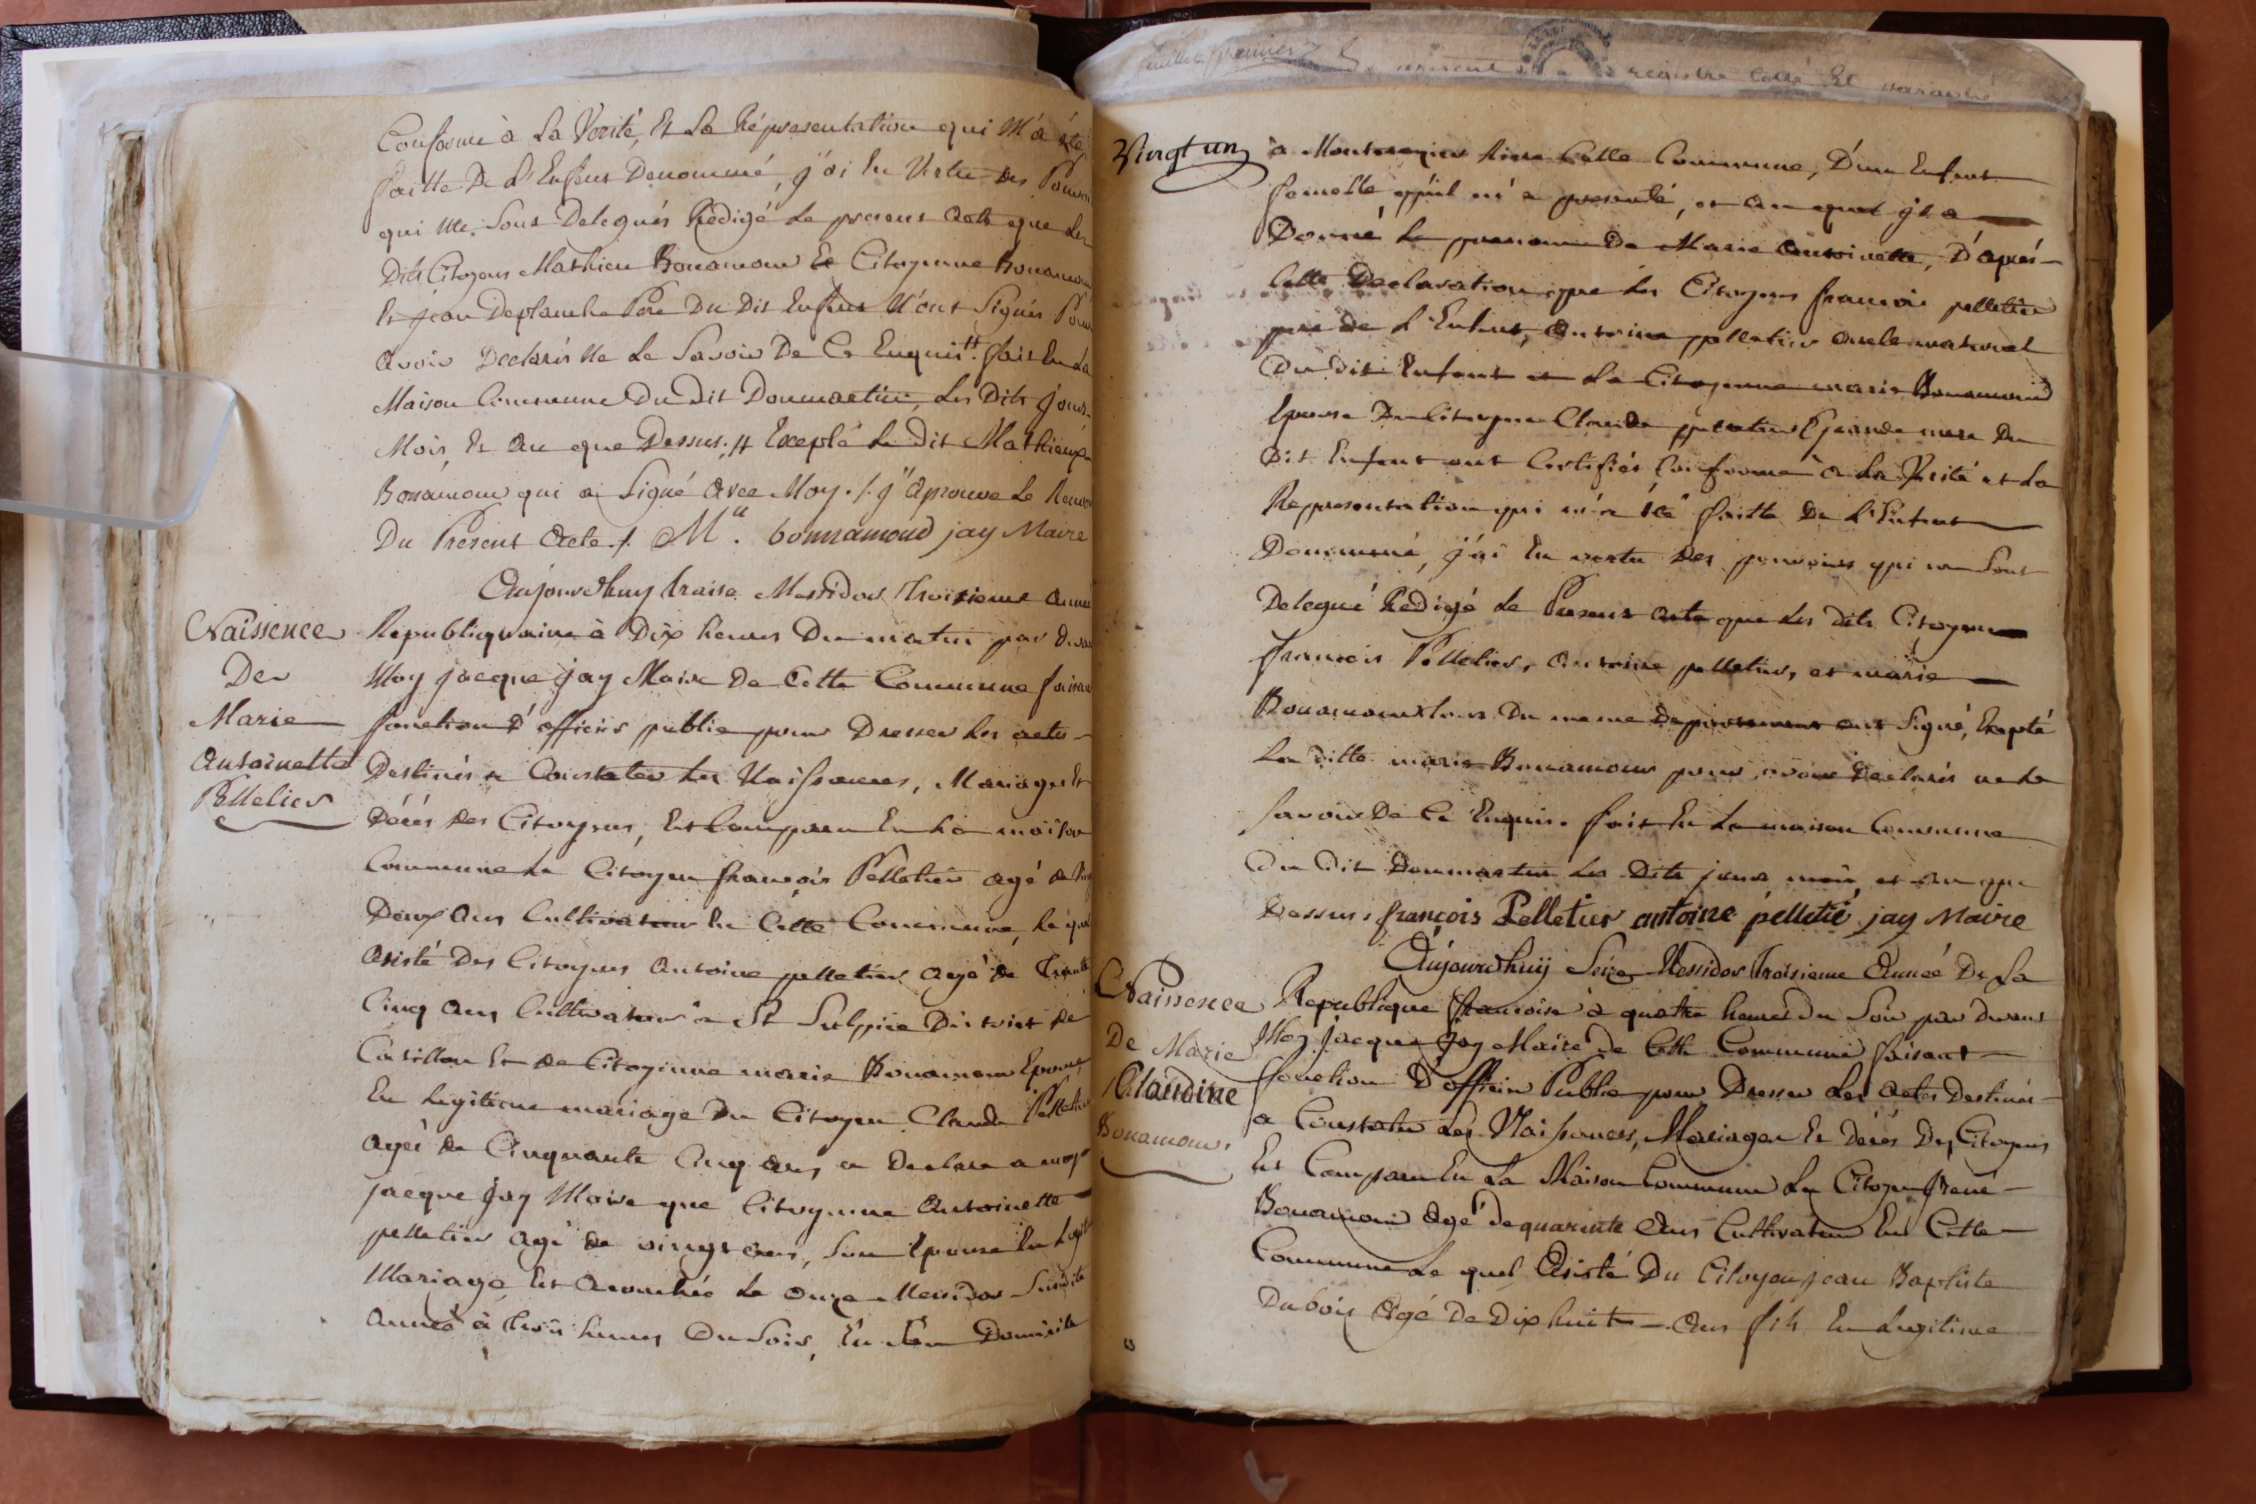 Conforme à La Vérité, Et La Réprésentation qui M'a été
faitte De L'Enfent Denommé, j'ai En Vertu des Pouvoi
qui Me Sont Delegués Redigé Le present acte que Les
Dits Citoyens Mathieu Bonamour Et Citoyenne Bonamour
Et jean Deplanche Pere Du Dit Enfent N'ont Signés Pour
avoir Declarés Ne Le Savoir De Ce Enquis # fait En La
Maison Commune Du Dit Dommartin, Les Dits jour
Mois, Et An que Dessus. # Excepté Le Dit Mathieu
Bonamour qui a Signé Avec Moy ./. j'aprouve Le Renvoi
Du Présent Acte ./. Mu. bonnamoud jay Maire
Aujourdhuy traise Messidor Troisieme année
Naissence
De
Marie
Antoinette
Pelletier
Republiquaine à Dix heures Du matin par devan
Moy jacque jay Maire De Cette Commune faisan
fonction d'officier public pour Dresser Les actes
Destinés a Constater Les Naissances, Mariages Et
Décés des Citoyens, Est Comparu En La maison
Commune Le Citoyen françois Pelletier agé de Ving
Deux ans Cultivateur En Cette Commune, Le quel
asisté Des Citoyens Antoine pelletier agé de Trente
Cinq ans Cultivateur a St Sulpice District de
Chatillon Et de Citoyenne marie Bonamour Epouse
En Legitime mariage Du Citoyen Claude Pelletier
agés de Cinquante Cinq ans, a Declaré a moy
jacque jay Maire que Citoyenne Antoinette
pelletier agé de vingt ans, Son Epouse En Legit
Mariage Est Acouchée Le Onze Messidor Susdite
Année à trois heures Du Soir, En Son Domicile
Vingt un
à Montmegin riere Cette Commune, D'un Enfent
femelle, qu'il m'a presenté, et au quel jl a
Donné Le prenom De Marie Antoinette, D'aprés
Cette Declaration que Les Citoyens francois pelletier
pere de L'Enfent, Antoine pelletier oncle maternel
Du dit Enfent et La Citoyenne marie Bonamourd
Epouse Du Citoyen Claude pelletier Grande mere Du
Dit Enfent ont Certifiés Conforme à La Verité et La
Representation qui m'a été faitte De L'Enfent
Denommé, j'ai En vertu Des pouvoirs qui me Sont
Delegué Redigé Le Present acte que Les Dits Citoyens
francois Pelletier, Antoine pelletier, et marie
Bonamour Du meme Departement ont Signé, Exepté
La ditte marie Bonamour pour avoir Declarés ne Le
Savoir De Ce Enquis. fait En La maison Commune
Du Dit Dommartin Les Dits jour mois, et an que
Dessus. françois Pelletier antoine pelletié jay Maire
Aujourdhuij Seize Messidor Troisieme Année De La
Naissence
De Marie
Claudine
Bonamour
Republique francoise à quatre heures du Soir par devant
Moy jacque jay Maire de Cette Commune faisant
fonction D'officier Public pour Dresser Les Actes Destinés
a Constater Les Naissances, Mariages Et décés Des Citoyens
Est Comparu En La Maison Commune Le Citoyen René
Bonamour Agé de quarente Ans Cultivateur En Cette
Commune Le quel Asisté Du Citoyen jean Baptiste
Dubois Agé De Dix huit Ans fils En Legitime